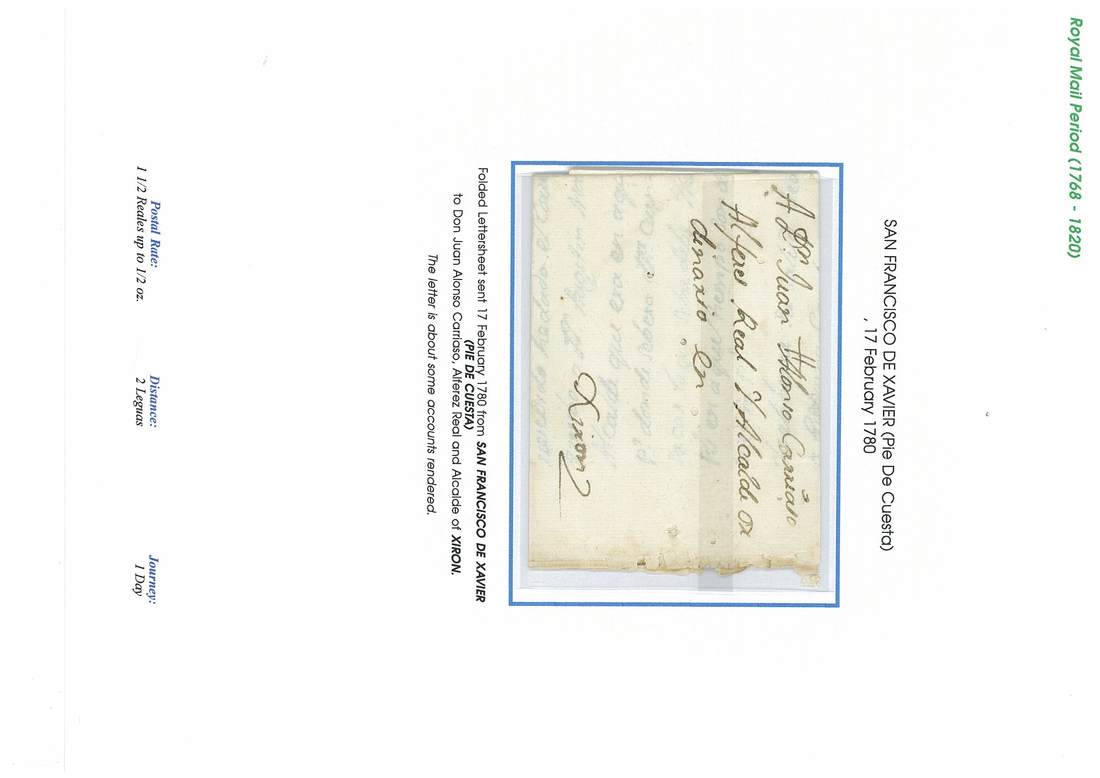 Royal Mail Period (1768 - 1820)
SAN FRANCISCO DE XAVIER (Pie De Cuesta)
, 17 February 1780
A Dn
Dn. Juan Alonso Carriaso
Alferes Real y Alcalde or
dinario en
Xixon
Folded Lettersheet sent 17 February 1780 from SAN FRANCISCO DE XAVIER
(PIE DE CUESTA)
to Don Juan Alonso Carrioso, Alferez Real and Alcalde of XIRON.
The letter is about some accounts rendered.
Postal Rate: Distance: Journey:
1 1/2 Reales up to 1/2 oz. 2 Leguas 1 Day